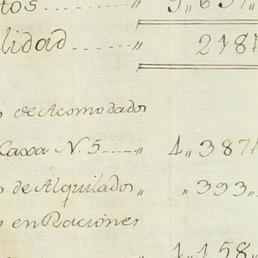 tos ........ „ 9„637„
lidad ..... „ 2187
s de Acomodados
Caxa N. 5 .... „ 4„387
s de Alquilados „ „393„
s en Raciones
4„158„